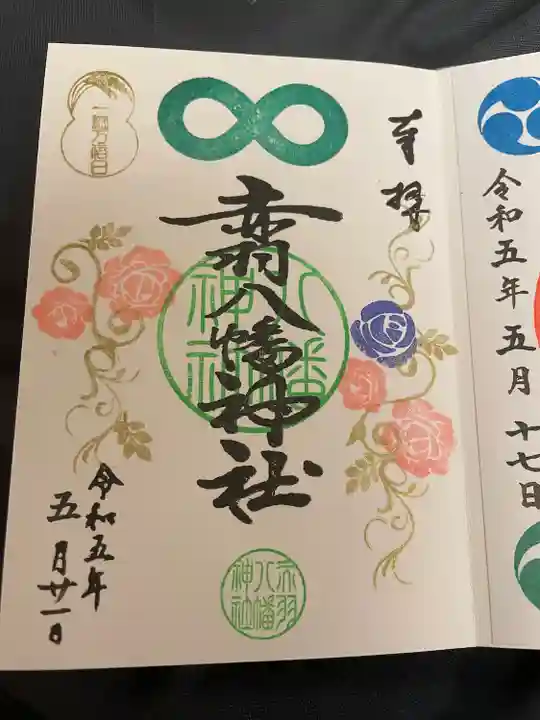 奉拝
赤羽八幡神社
八幡
神社
赤羽
八幡
神社
令和五年
五月廿一日
一粒万倍日
令和五年五月十七日